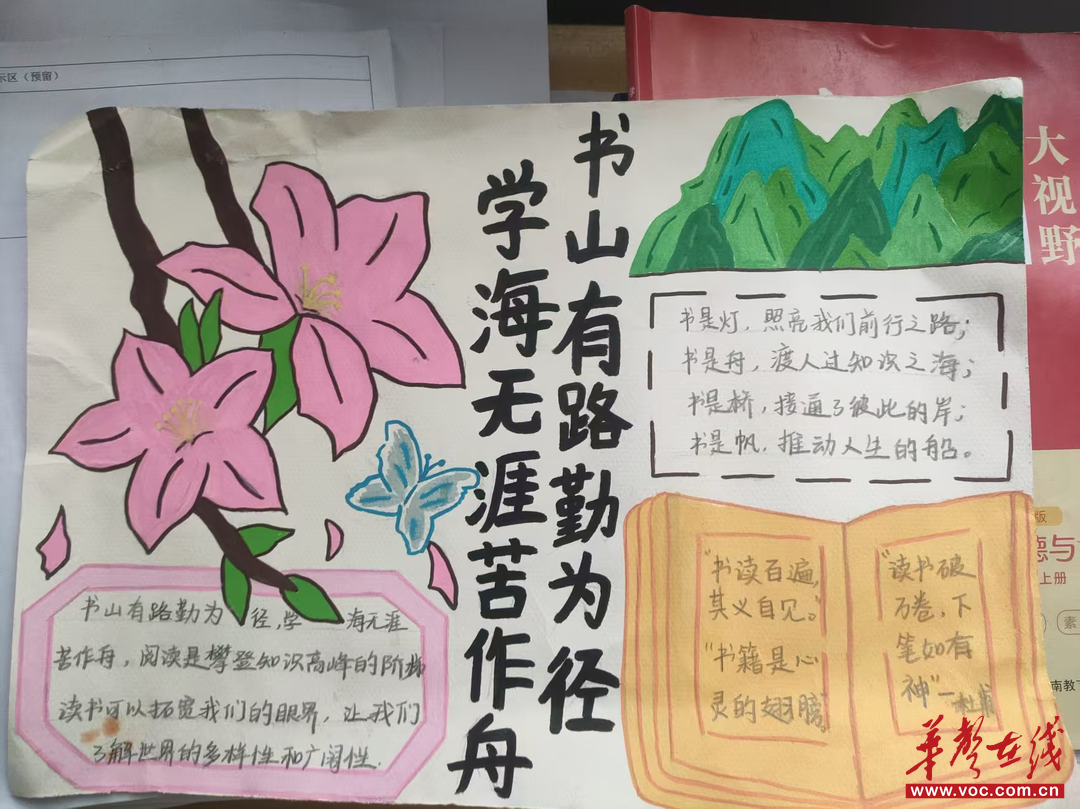 示区（预留）
书山有路勤为径
学海无涯苦作舟
大视野
书是灯，照亮我们前行之路；
书是舟，渡人过知识之海；
书是桥，接通了彼此的岸；
书是帆，推动人生的船。
"书读百遍，
其义自见。"
"书籍是心
灵的翅膀"
"读书破
万卷，下
笔如有
神"—杜甫
书山有路勤为 径，学 海无涯
苦作舟，阅读是攀登知识高峰的阶梯
读书可以拓宽我们的眼界，让我们
了解世界的多样性和广阔性.
版
德与
上册
素
南教
华声在线
www.voc.com.cn